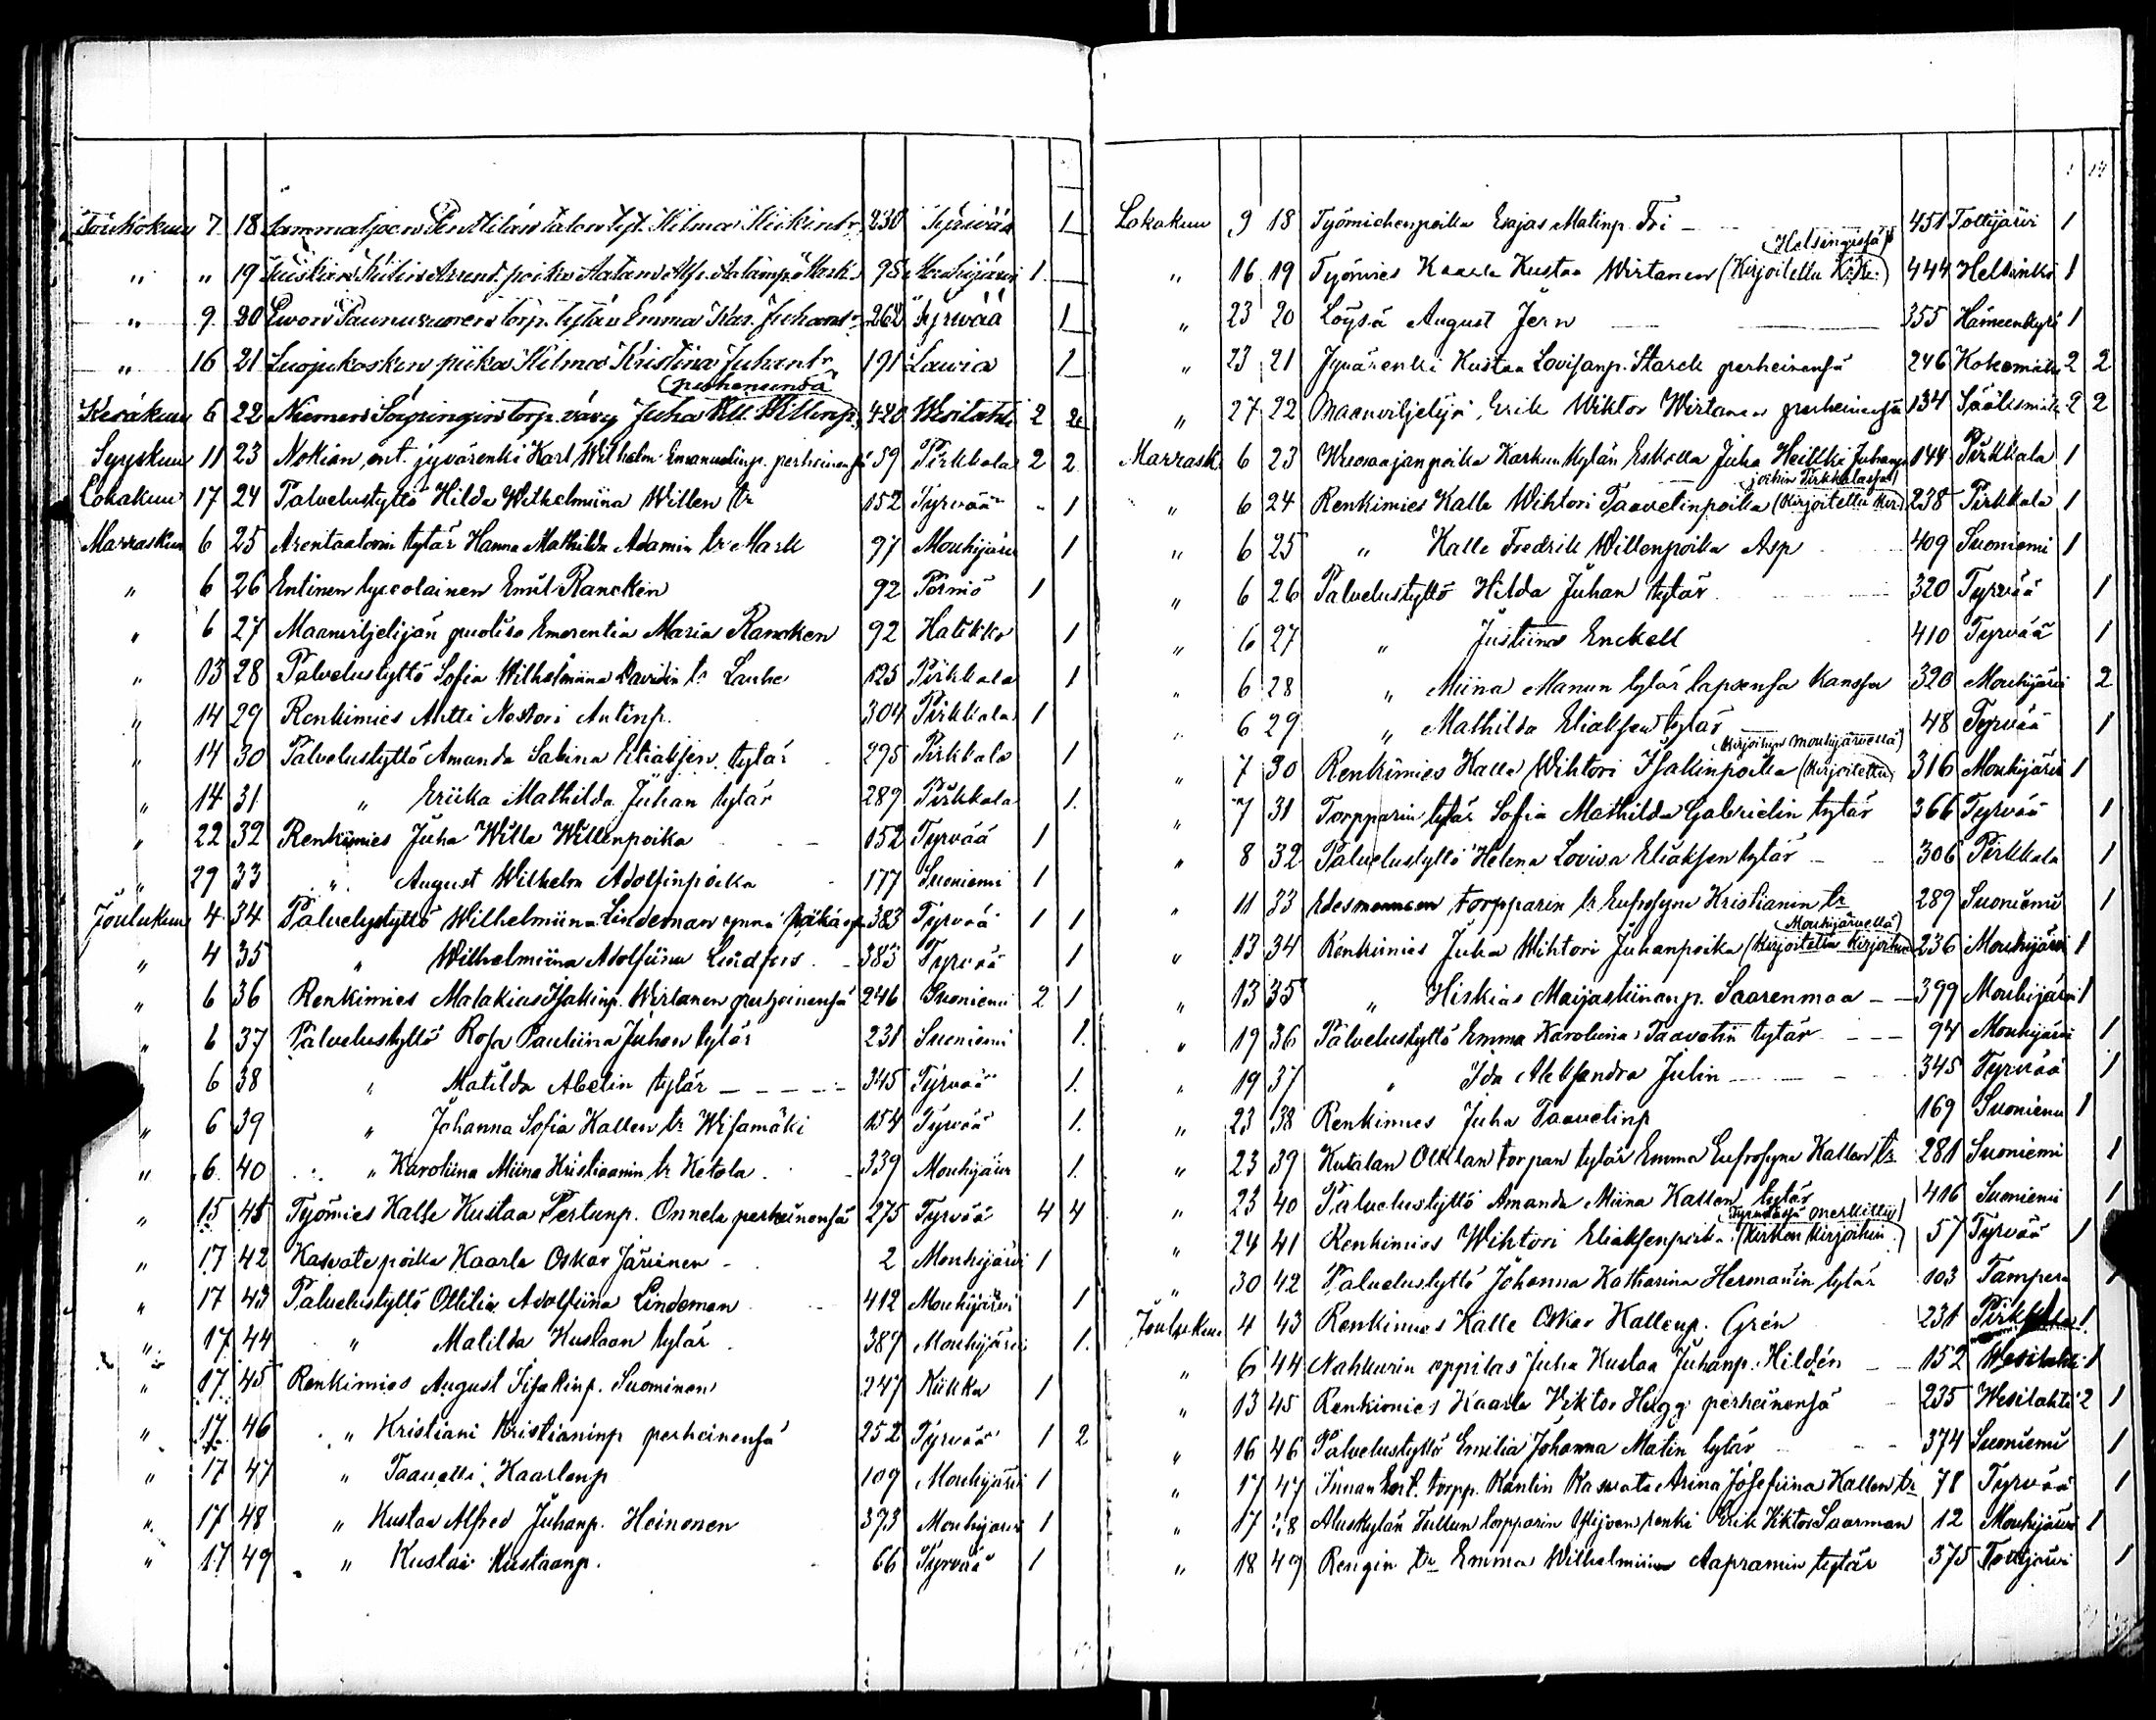 Toukokuu 7 18 Sammaljoen Talon tyt. Hilma Heikintr 230 Tyrvää 1
" " 19 Arend. poika 95 Mouhijärvi 1
" 9 20 torp. tytär Emma Kar. Juhantr 262 Tyrvää 1
" 16 21 piika Hilma Kristina Juhantr 191 Lavia 1
perheinensä
Kesäkuu 6 22 Niemen torp. vävy Juha Willenp. 420 Wesilahti 2 2
Syyskuu 11 23 Nokian, ent. jyvärenki Karl Wilhelm Emanuelinp. perheinensä 59 Pirkkala 2 2
Lokakuu 17 24 Palvelustyttö Hilda Wilhelmiina Willen tr 152 Tyrvää " 1
Marraskuu 6 25 Arentaatorin tytär Hanna Mathilda Adamin tr Mark 97 Mouhijärvi 1
" 6 26 Entinen lyseolainen Emil Rancken 92 Perniö 1
" 6 27 Maanviljelijän puoliso Emerentia Maria Rancken 92 Halikko 1
" 13 28 Palvelustyttö Sofia Wilhelmiina Davidin tr Lauhe 125 Pirkkala 1
" 14 29 Renkimies Antti Nestori Antinp. 304 Pirkkala 1
" 14 30 Palvelustyttö Amanda Sabina Eliaksen tytär 295 Pirkkala 1
" 14 31 " Eriika Mathilda Juhan tytär 289 Pirkkala 1.
" 22 32 Renkimies Juha Wille Willenpoika 152 Tyrvää 1
" 29 33 " August Wilhelm Adolfinpoika 177 Suoniemi 1
Joulukuu 4 34 Palvelustyttö Wilhelmiina Lindeman 383 Tyrvää 1 1
" 4 35 " Wilhelmiina Adolfiina Lindfors 383 Tyrvää 1
" 6 36 Renkimies Malakias Isakinp. Wirtanen perheinensä 246 Suoniemi 2 1
" 6 37 Palvelustyttö Rosa Pauliina Juhan tytär 231 Suoniemi 1.
" 6 38 " Matilda Abelin tytär 345 Tyrvää 1.
" 6 39 " Johanna Sofia Kallen tr Wisamäki 154 Tyrvää 1.
" 6. 40 " Karoliina Miina Kristiaanin tr Ketola 339 Mouhijärvi 1.
" 15 45 Työmies Kalle Kustaa Pertunp. Onnela perheinensä 275 Tyrvää 4 4
" 17 42 Kasvatepoika Kaarle Oskar Järvinen 2 Mouhijärvi 1
" 17 43 Palvelustyttö Ottilia Adolfiina Lindeman 412 Mouhijärvi 1
" 17 44 " Matilda Kustaan tytär 387 Mouhijärvi 1.
" 17. 45 Renkimies August Iisakinp. Suominen 247 Kiikka 1
" 17. 46 " Kristiani Kristianinp perheinensä 252 Tyrvää 1 2
" 17 47 " Taavetti Kaarlenp 109 Mouhijärvi 1
" 17 48 " Kustaa Alfred Juhanp. Heinonen 373 Mouhijärvi 1
" 17 49 " Kustaa Kustaanp. 66 Tyrvää 1
Lokakuu 9 18 Työmiehenpoika Esajas Matinp. Fri 451 Tottijärvi 1
Helsingissä
" 16 19 Työmies Kaarle Kustaa Wirtanen (Kirjoitettu Kr.Kr.) 444 Helsinki 1
" 23 20 Löysä August Jern 355 Hämeenkyrö 1
" 23 21 Jyvärenki Kustaa Lovisanp. Starck perheinensä 246 Kokemäki 2 2
" 27 22 Maanviljelijä, Erik Wiktor Wirtanen perheinensä 134 Sääksmäki 2 2
Marrask. 6 23 Wuoraajanpoika Karkunkylän Eskola Juha Heikki Juhanp 144 Pirkkala 1
joihin Pirkkalassa)
" 6 24 Renkimies Kalle Wihtori Taavetinpoika (Kirjoitettu Kir) 238 Pirkkala 1
" 6 25 " Kalle Fredrik Willenpoika Asp 409 Suoniemi 1
" 6 26 Palvelustyttö Hilda Juhan tytär 320 Tyrvää 1
" 6 27 " Justiina Enckell 410 Tyrvää 1
" 6 28 " Miina Manun tytär lapsensa kanssa 320 Mouhijärvi 2
" 6 29 " Mathilda Eliaksen tytär 48 Tyrvää 1
Kirjoihin Mouhijärvellä)
" 7 30 Renkimies Kalle Wihtori Isakinpoika (Kirjoitettu 316 Mouhijärvi 1
" 7 31 Torpparin tytär Sofia Mathilda Gabrielin tytär 366 Tyrvää 1
" 8 32 Palvelustyttö Helena Loviva Eliaksen tytär 306 Pirkkala 1
" 11 33 torpparin tr Eufrosyne Kristianin tr 289 Suoniemi 1
Mouhijärvellä)
" 13 34 Renkimies Juha Wihtori Juhanpoika (Kirjoitettu Kirjoihin 236 Mouhijärvi 1
" 13 35 " Hiskias Maijastiinanp. Saarenmaa 399 Mouhijärvi 1
" 19 36 Palvelustyttö Emma Karoliina Taavetin tytär 94 Mouhijärvi 1
" 19 37 " Ida Aleksandra Julin 345 Tyrvää 1
" 23 38 Renkimies Juha Taavetinp 169 Suoniemi 1
" 23 39 Kutalan Ollilan torpan tytär Emma Eufrosyne Kallen tr 281 Suoniemi 1
" 23 40 Palvelustyttö Amanda Miina Kallen tytär 416 Suoniemi 1
Tyrväässä merkitty
" 24 41 Renkimies Wihtori Eliaksenpoika (Kirkon Kirjoihin) 57 Tyrvää 1
" 30 42 Palvelustyttö Johanna Katharina Hermanin tytär 103 Tampere 1
Joulukuu 4 43 Renkimies Kalle Oskar Kallenp. Grén 231 Pirkkala 1.
" 6 44 Nahkurin oppilas Juha Kustaa Juhanp. Hildén 152 Wesilahti 1
" 13 45 Renkimies Kaarle Viktor Hägg perheinensä 235 Wesilahti 2 1
" 16 46 Palvelustyttö Emilia Johanna Matin tytär 374 Suoniemi 1
" 17 47 torpp. Kasvate Josefiina Kallen tr 78 Tyrvää 1
" 17 48 Aluskylän torpparin renki Erik Viktor Saarman 12 Mouhijärvi 1
" 18 49 Rengin tr Emma Wilhelmiina Aapramin tytär 375 Tottijärvi 1